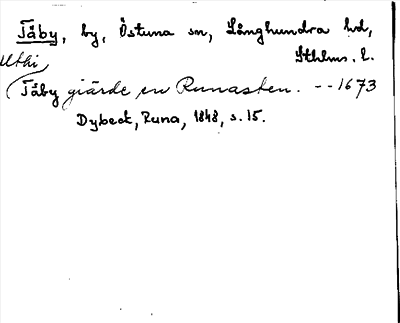 Täby, by, Östuna sn, Långhundra hd,
Sthlms. l.
Uthi
Täby giärde en Runasten. -- 1673
Dybeck, Runa, 1848, s. 15.